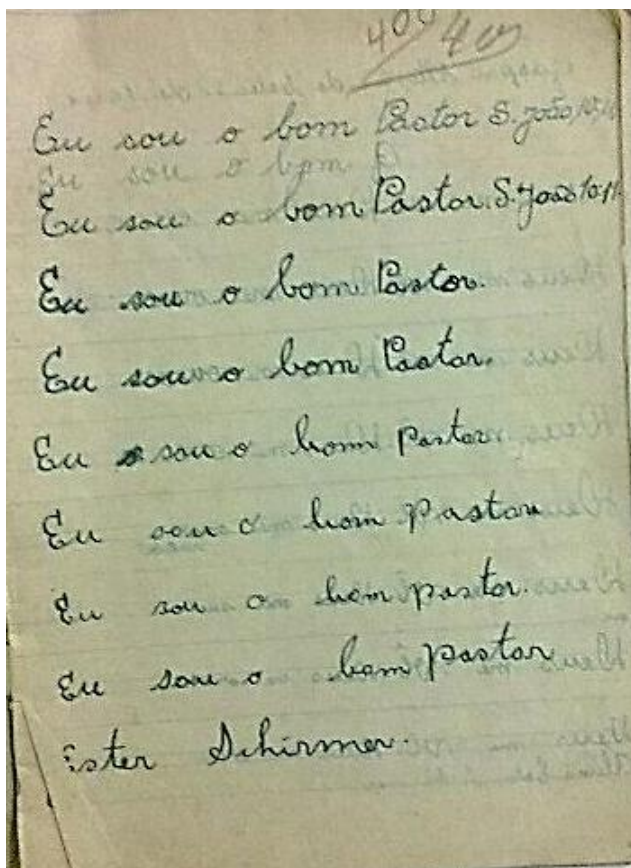 400 400
Eu sou o bom Pastor S. João, 10,11
Eu sou o bom
Eu sou o bom Pastor. S. João 10,11.
Eu sou o bom Pastor.
Eu sou o bom Pastor.
Eu sou o bom pastor
Eu sou o bom pastor
Eu sou o bom pastor.
Eu sou o bom pastor
Ester Schirmer.